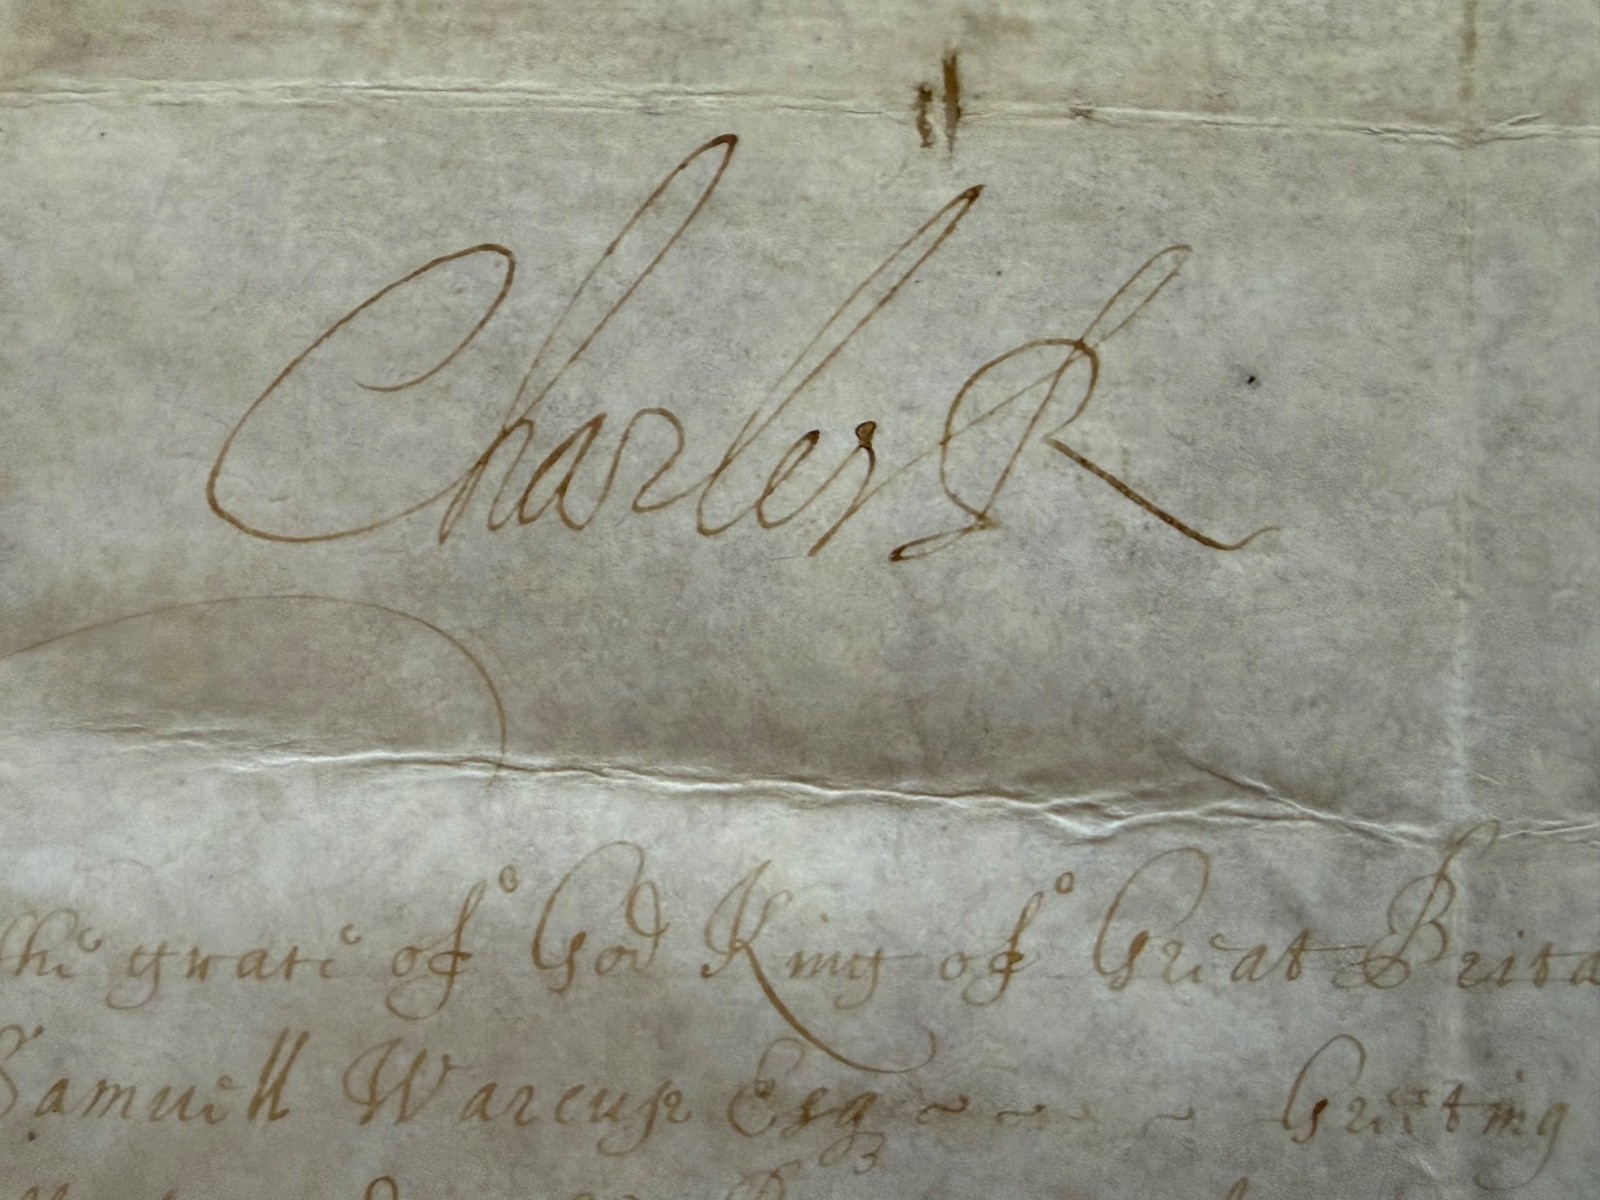 Charles R
the grace of God King of Great Brita
Samuell Esq Greeting